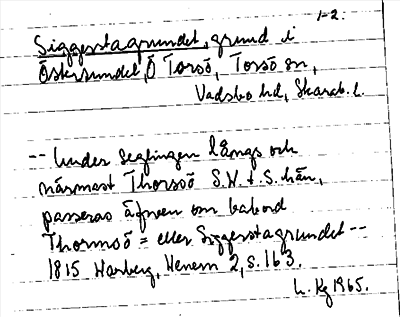 1-2.
Siggestagrundet, grund i
Östersundet, Ö Torsö, Torsö sn,
Vadsbo hd, Skarab. l.
-- Under Seglingen långs och
närmast Thorsoö S.V. t. S. hän,
passeras äfwen om babord
Thormoö = eller Siggestagrundet --
1815 Warberg, Wenern 2, s. 163.
L. Kg 1965.